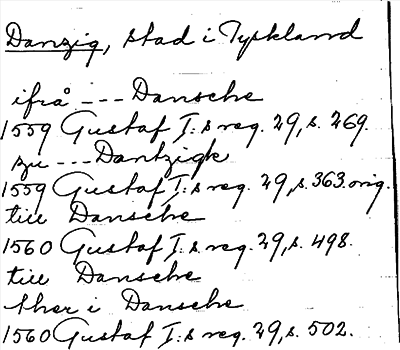 Danzig, stad i Tyskland
ifrå --- Dansche
1559 Gustaf I:s reg. 29, s. 269.
zu --- Dantzigk
1559 Gustaf I:s reg. 29, s. 363. orig.
till Dansche
1560 Gustaf I:s reg. 29, s. 498.
till Dansche
ther i Dansche
1560 Gustaf I:s reg. 29, s. 502.